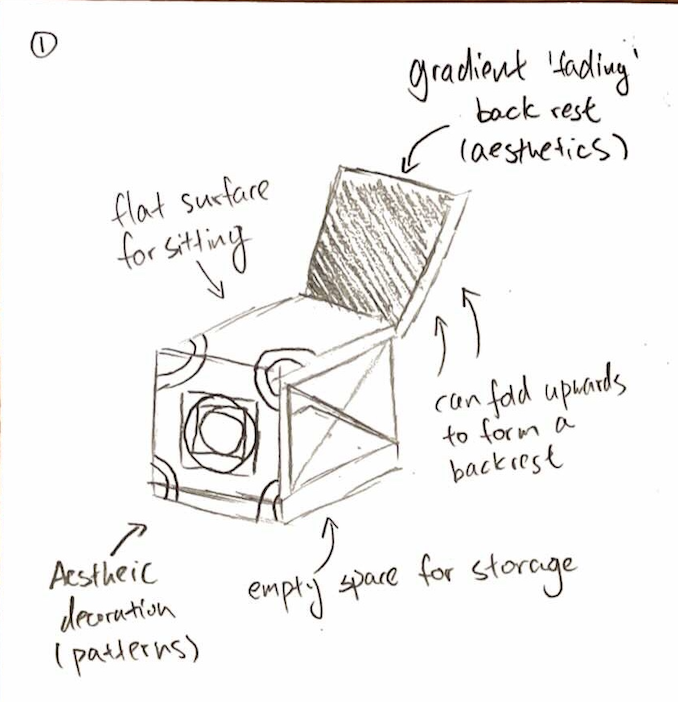 ①
gradient 'fading'
back rest
(aesthetics)
flat surface
for sitting
can fold upwards
to form a
backrest
empty space for storage
Aestheic
decoration
(patterns)